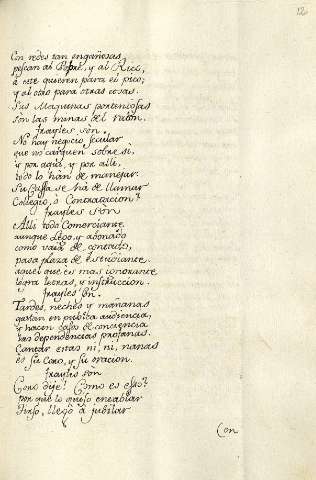 12
Con redes tan engañosas,
pescan al Pobre, y al Rico,
à este quieren para el pico;
y al otro para otras cosas.
Sus Maquinas portentosas
son las minas del raton.
frayles son.
No hay negocio secular
que no carguen sobre si,
y por aqui, y por alli,
todo lo han de manejar.
Su Casa se hà de llamar
Collegio, ò Contratacion?
frayles son
Alli todo Comerciante
aunque Lego, y abonado
como vaia de contado,
pasa plaza de Estudiante
aquel que es mas ignorante
logra letras, y instruccion.
frayles son.
Tardes, noches y mañanas
gastan en publica audiencia,
y hacen casos de conciencia
las dependencias profanas.
Cantar estas ni, ni, nanas
es su Coro, y su oracion.
frayles son
Coro dije! Como es esso?
por que lo quiso entablar
Tirso, llegò a jubilar
Con